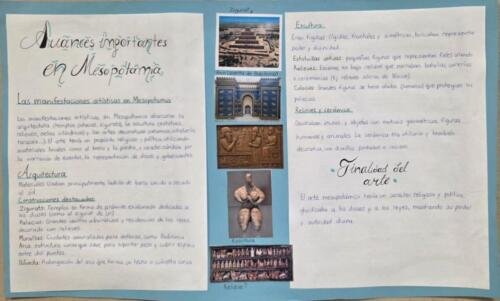 Avances importantes
en Mesopotamia
Las manifestaciones artísticas en Mesopotamia
Las manifestaciones artísticas en Mesopotamia abarcaron la
arquitectura (templos, palacios, zigurats), la escultura (estatuas,
relieves, sellos cilíndricos) y las artes decorativas (cerámica, orfebrería,
El arte tenía un propósito religioso y político, utilizando
materiales locales como el barro y la piedra,
la representación de dioses y gobernantes.
Arquitectura
Materiales: Usaban principalmente ladrillo de barro
al sol
Construcciones destacadas:
Zigurats: Templos en forma de pirámide escalonada dedicados a
los dioses (como el zigurat de Ur)
Palacios: Grandes centros administrativos y residencias de los reyes
decorados con relieves.
Murallas: Ciudades amuralladas para defensa, como Babilonia
Arco: estructura curva que sirve para soportar peso y cubrir espacios
entre dos puntos.
Bóveda: Prolongación del arco que forma un techo o cubierta curva
Zigurat
Escritura
Relieve
Escultura:
Eran figuras rígidas, frontales y simétricas, buscaban representar
poder y divinidad.
Estatuillas votivas: pequeñas figuras que representaban fieles orando
Relieves: Escenas en bajo relieve que narraban batallas, cacerías
o ceremonias
Colosos: Grandes figuras de toros alados (lamassu) que protegían los
palacios.
Relieves y cerámica:
Decoraban muros y objetos con motivos geométricos, figuras
humanas y animales. La cerámica era utilitaria y también
decorativa, con diseños pintados o incisos.
Finalidad del
arte
El arte mesopotámico tenía un carácter religioso y político,
glorificaba a los dioses y a los reyes, mostrando su poder
y autoridad divina.